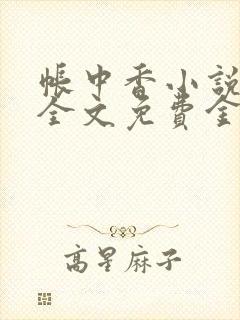 帐中香小說
全文免費全
高星麻子